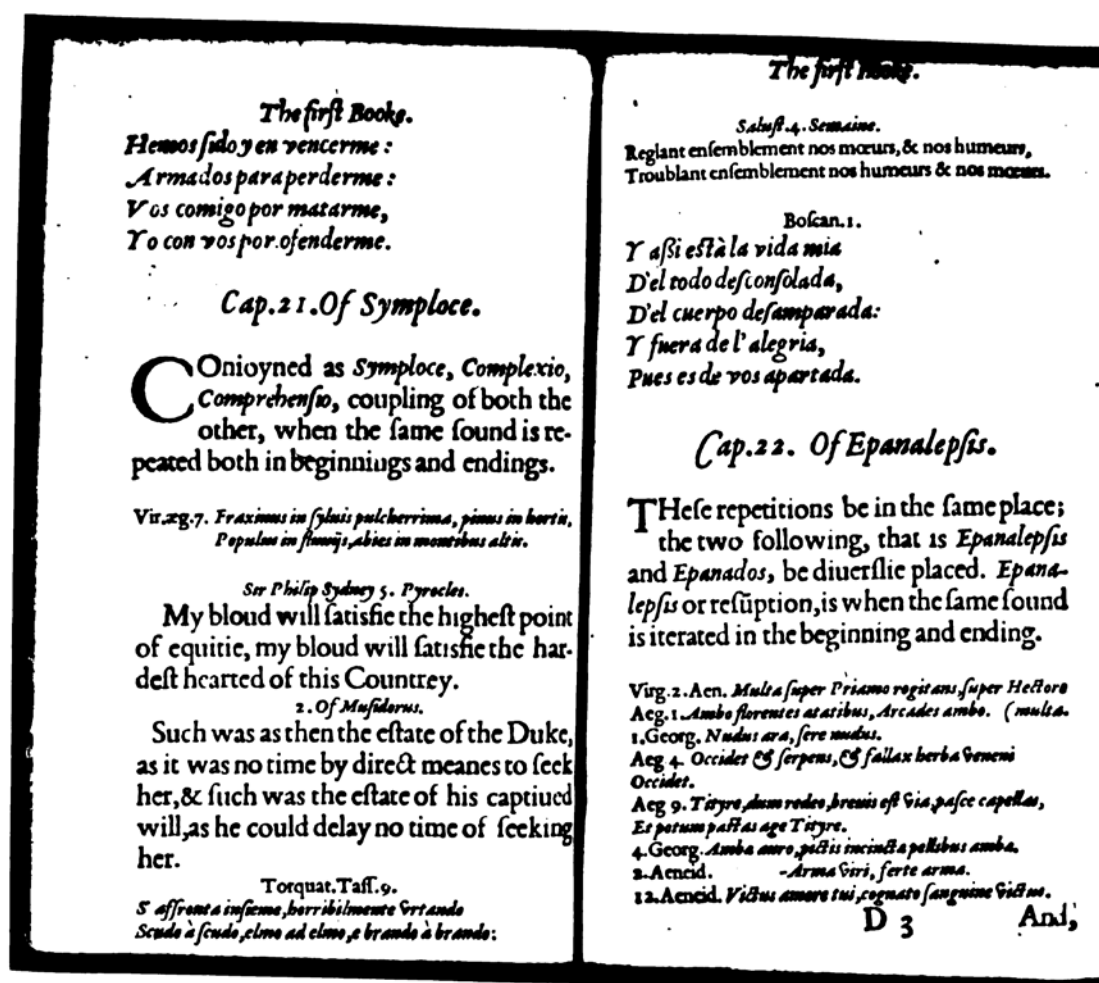 The firſt Booke.
Hemos ſido y en vencerme :
Armados para perderme :
Vos comigo por matarme,
Yo con vos por ofenderme.
Cap.21.Of Symploce.
COnioyned as Symploce, Complexio,
Comprehenſio, coupling of both the
other, when the ſame ſound is re-
peated both in beginnings and endings.
Vir.æg.7. Fraxinus in ſyluis pulcherrima, pinus in hortis,
Populus in fluuijs, abies in montibus altis.
Ser Philip Sydney 5. Pyrocles.
My bloud will ſatisfie the higheſt point
of equitie, my bloud will ſatisfie the har-
deſt hearted of this Countrey.
2. Of Muſidorus.
Such was as then the eſtate of the Duke,
as it was no time by direct meanes to ſeek
her,& ſuch was the eſtate of his captiued
will,as he could delay no time of ſeeking
her.
Torquat.Taſſ.9.
S' affronta inſieme,horribilmente vrtando
Scudo à ſcudo,elmo ad elmo,e brando à brando:
The firſt Booke.
Saluſt.4.Semaine.
Reglant enſemblement nos mœurs,& nos humeurs,
Troublant enſemblement nos humeurs & nos mœurs.
Boſcan.1.
Y aſsi eſtà la vida mia
D'el todo deſconſolada,
D'el cuerpo deſamparada:
Y fuera de l' alegria,
Pues es de vos apartada.
Cap.22. Of Epanalepſis.
THeſe repetitions be in the ſame place;
the two following, that is Epanalepſis
and Epanados, be diuerſlie placed. Epana-
lepſis or reſũption,is when the ſame ſound
is iterated in the beginning and ending.
Virg.2.Aen. Multa ſuper Priamo rogitans,ſuper Hectore
Aeg.1.Ambo florentes ætatibus, Arcades ambo. (multa.
1.Georg. Nudus ara, ſere nudus.
Aeg 4. Occidet & ſerpens,& fallax herba veneni
Occidet.
Aeg 9. Tityre,dum redeo,breuis eſt via,paſce capellas,
Et potum paſtas age Tityre.
4.Georg.Amba auro,pictis incincta pellibus amba.
2.Aeneid. -Arma viri, ferte arma.
12.Aeneid. Victus amore tui,cognato ſanguine victus.
D 3 And,